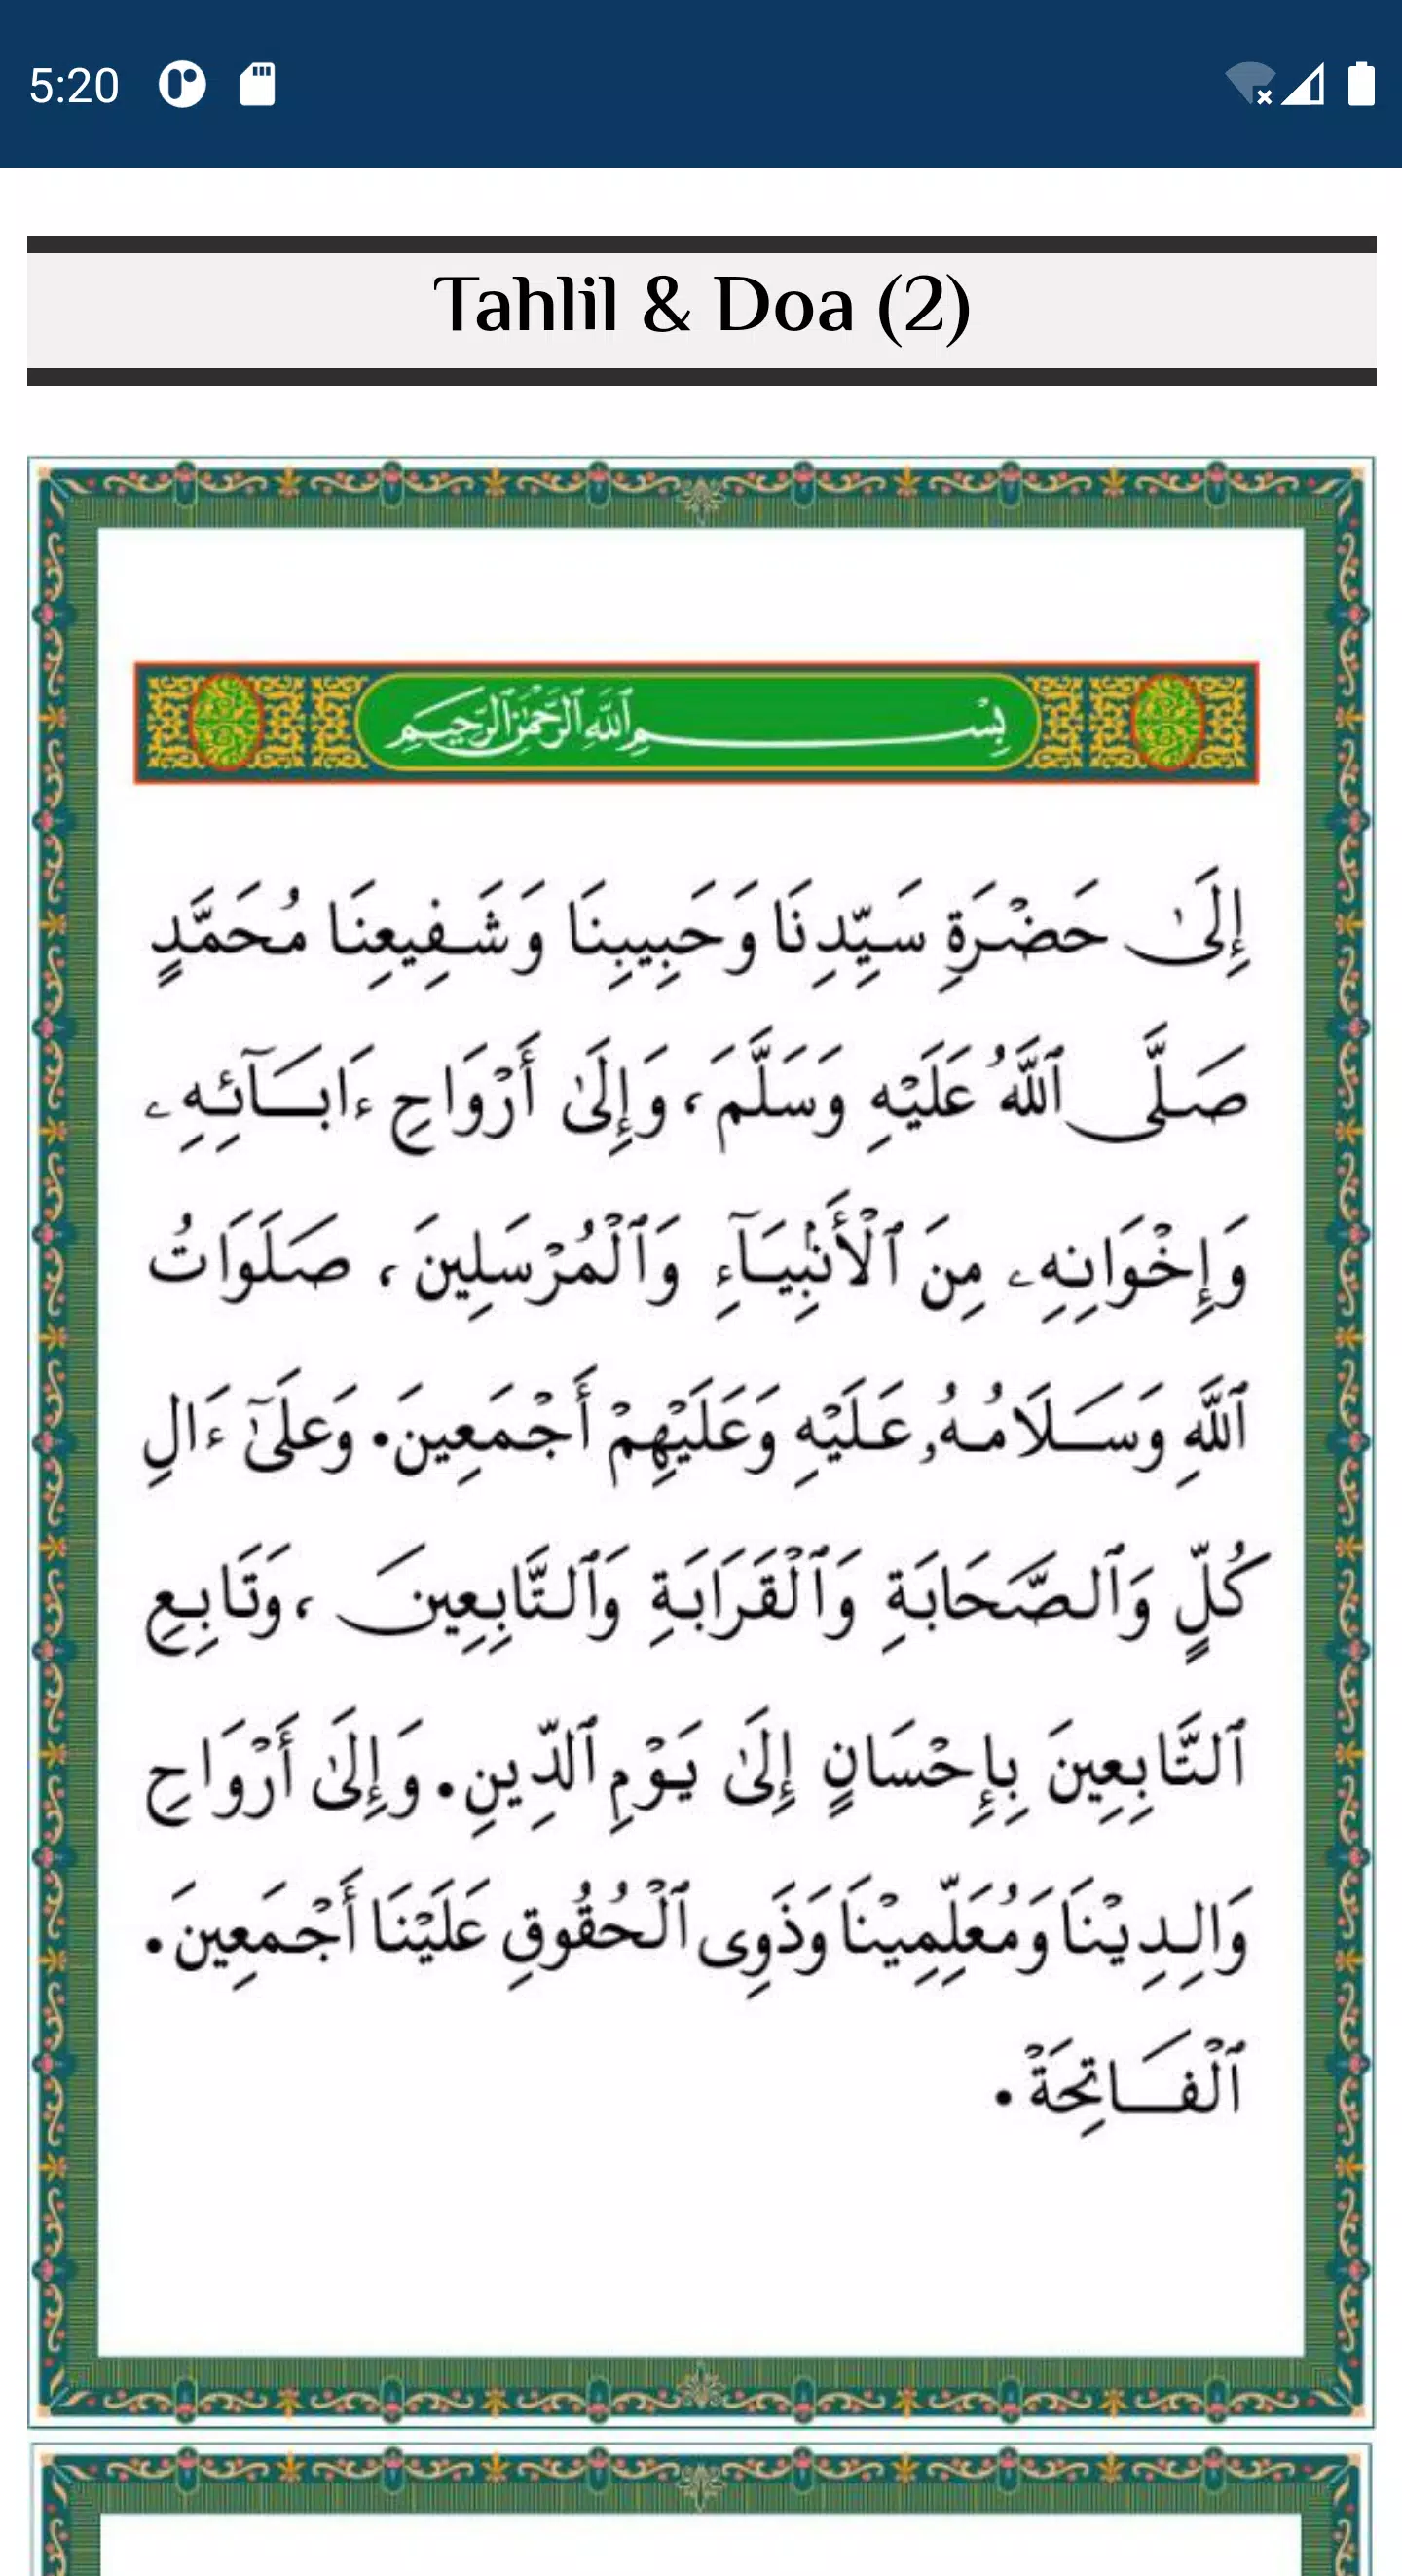 5:20
Tahlil & Doa (2)
بِسْمِ ٱللَّهِ ٱلرَّحْمَٰنِ ٱلرَّحِيمِ
إِلَىٰ حَضْرَةِ سَيِّدِنَا وَحَبِيبِنَا وَشَفِيعِنَا مُحَمَّدٍ
صَلَّى ٱللَّهُ عَلَيْهِ وَسَلَّمَ، وَإِلَىٰ أَرْوَاحِ ءَابَآئِهِۦ
وَإِخْوَانِهِۦ مِنَ ٱلْأَنْبِيَآءِ وَٱلْمُرْسَلِينَ، صَلَوَاتُ
ٱللَّهِ وَسَلَامُهُۥ عَلَيْهِ وَعَلَيْهِمْ أَجْمَعِينَ. وَعَلَىٰٓ ءَالِ
كُلٍّ وَٱلصَّحَابَةِ وَٱلْقَرَابَةِ وَٱلتَّابِعِينَ، وَتَابِعِ
ٱلتَّابِعِينَ بِإِحْسَانٍ إِلَىٰ يَوْمِ ٱلدِّينِ. وَإِلَىٰ أَرْوَاحِ
وَالِدِيْنَا وَمُعَلِّمِيْنَا وَذَوِى ٱلْحُقُوقِ عَلَيْنَا أَجْمَعِينَ.
ٱلْفَاتِحَةْ.